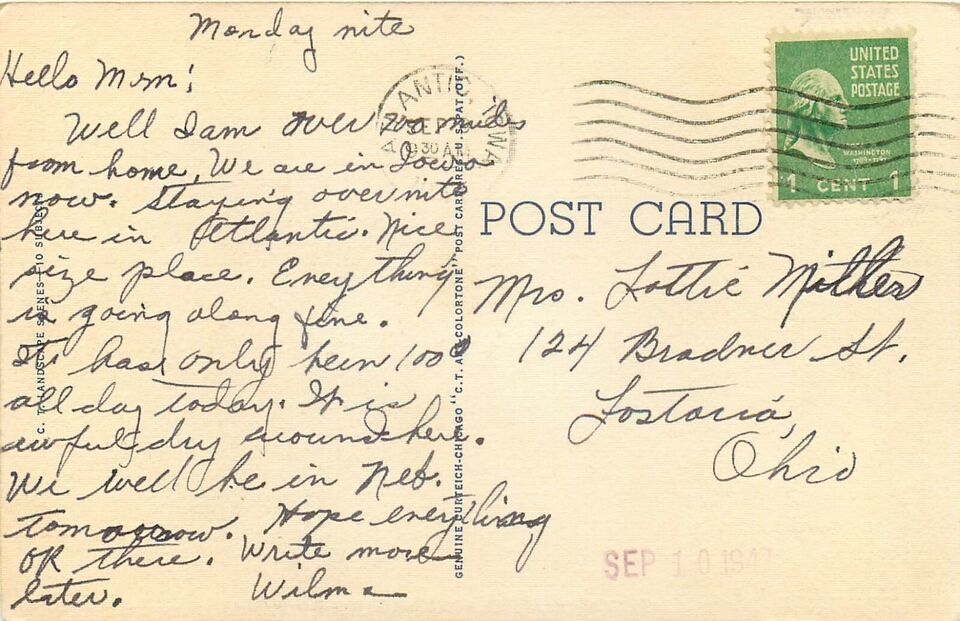 Monday nite
Hello Mom!
Well I am over 700 miles
from home. We are in Iowa
now. Staying overnite
here in Atlantic. Nice
size place. Everything
is going along fine.
It has only been 100°
all day today. It is
awful dry around here.
We will be in Neb.
tomorrow. Hope everything
OK there. Write more
later. Wilma
C. T. LANDSCAPE SCENES-(10 SUBJECTS)
GENUINE CURTEICH-CHICAGO "C.T. ART-COLORTONE" POST CARD (REG. U.S. PAT. OFF.)
ATLANTIC, IOWA
SEP
930 AM
UNITED
STATES
POSTAGE
WASHINGTON
1789-1797
1 CENT 1
POST CARD
Mrs. Lottie
124 Bradner St.
Fostoria,
Ohio
SEP 10 1947